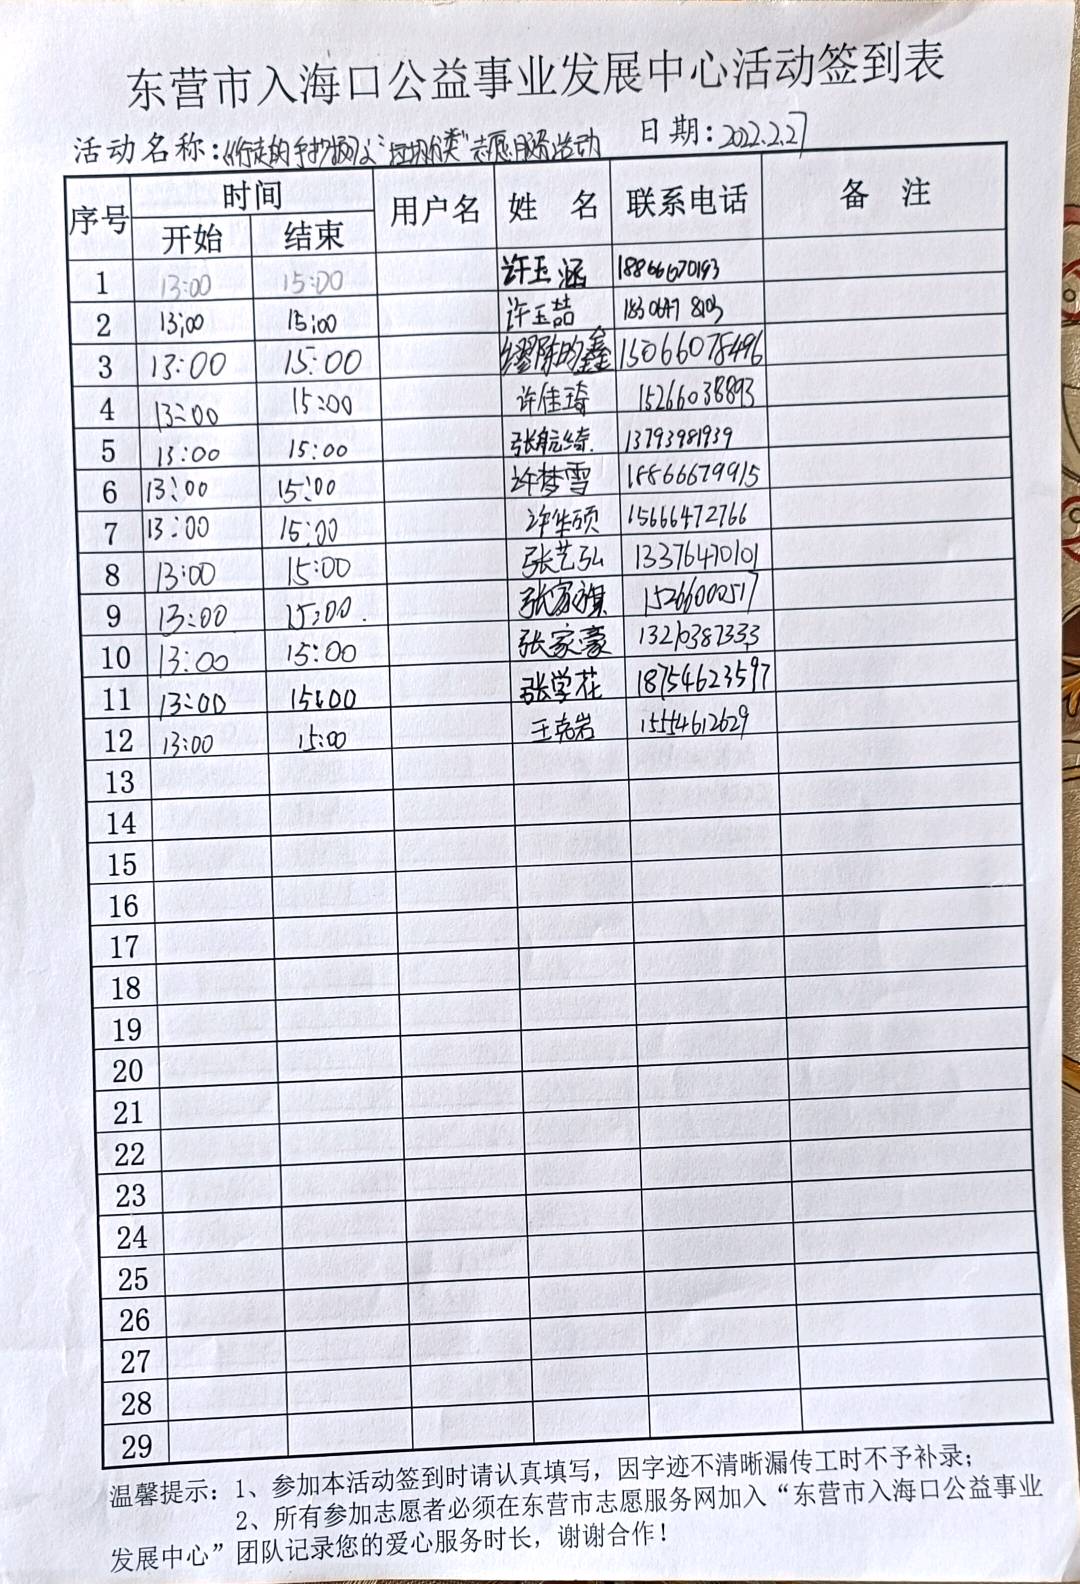 东营市入海口公益事业发展中心活动签到表
活动名称：《行走的 "垃圾分类"志愿服务活动 日期：2022.2.27
序号 时间 用户名 姓 名 联系电话 备 注
开始 结束
1 13:00 15:00 许玉涵 18866670193
2 13:00 15:00 许玉喆
3 13:00 15:00 15066078496
4 13:00 15:00 许佳琦 15266038893
5 13:00 15:00 13793981939
6 13:00 15:00 许梦雪 18866679915
7 13:00 15:00 15666472766
8 13:00 15:00 张艺弘 13376470101
9 13:00 15:00 张家旗 15266000517
10 13:00 15:00 张家豪 13210387333
11 13:00 15:00 张学花 18754623597
12 13:00 15:00 王克岩 15554612629
13
14
15
16
17
18
19
20
21
22
23
24
25
26
27
28
29
温馨提示：1、参加本活动签到时请认真填写，因字迹不清晰漏传工时不予补录；
2、所有参加志愿者必须在东营市志愿服务网加入“东营市入海口公益事业
发展中心”团队记录您的爱心服务时长，谢谢合作！